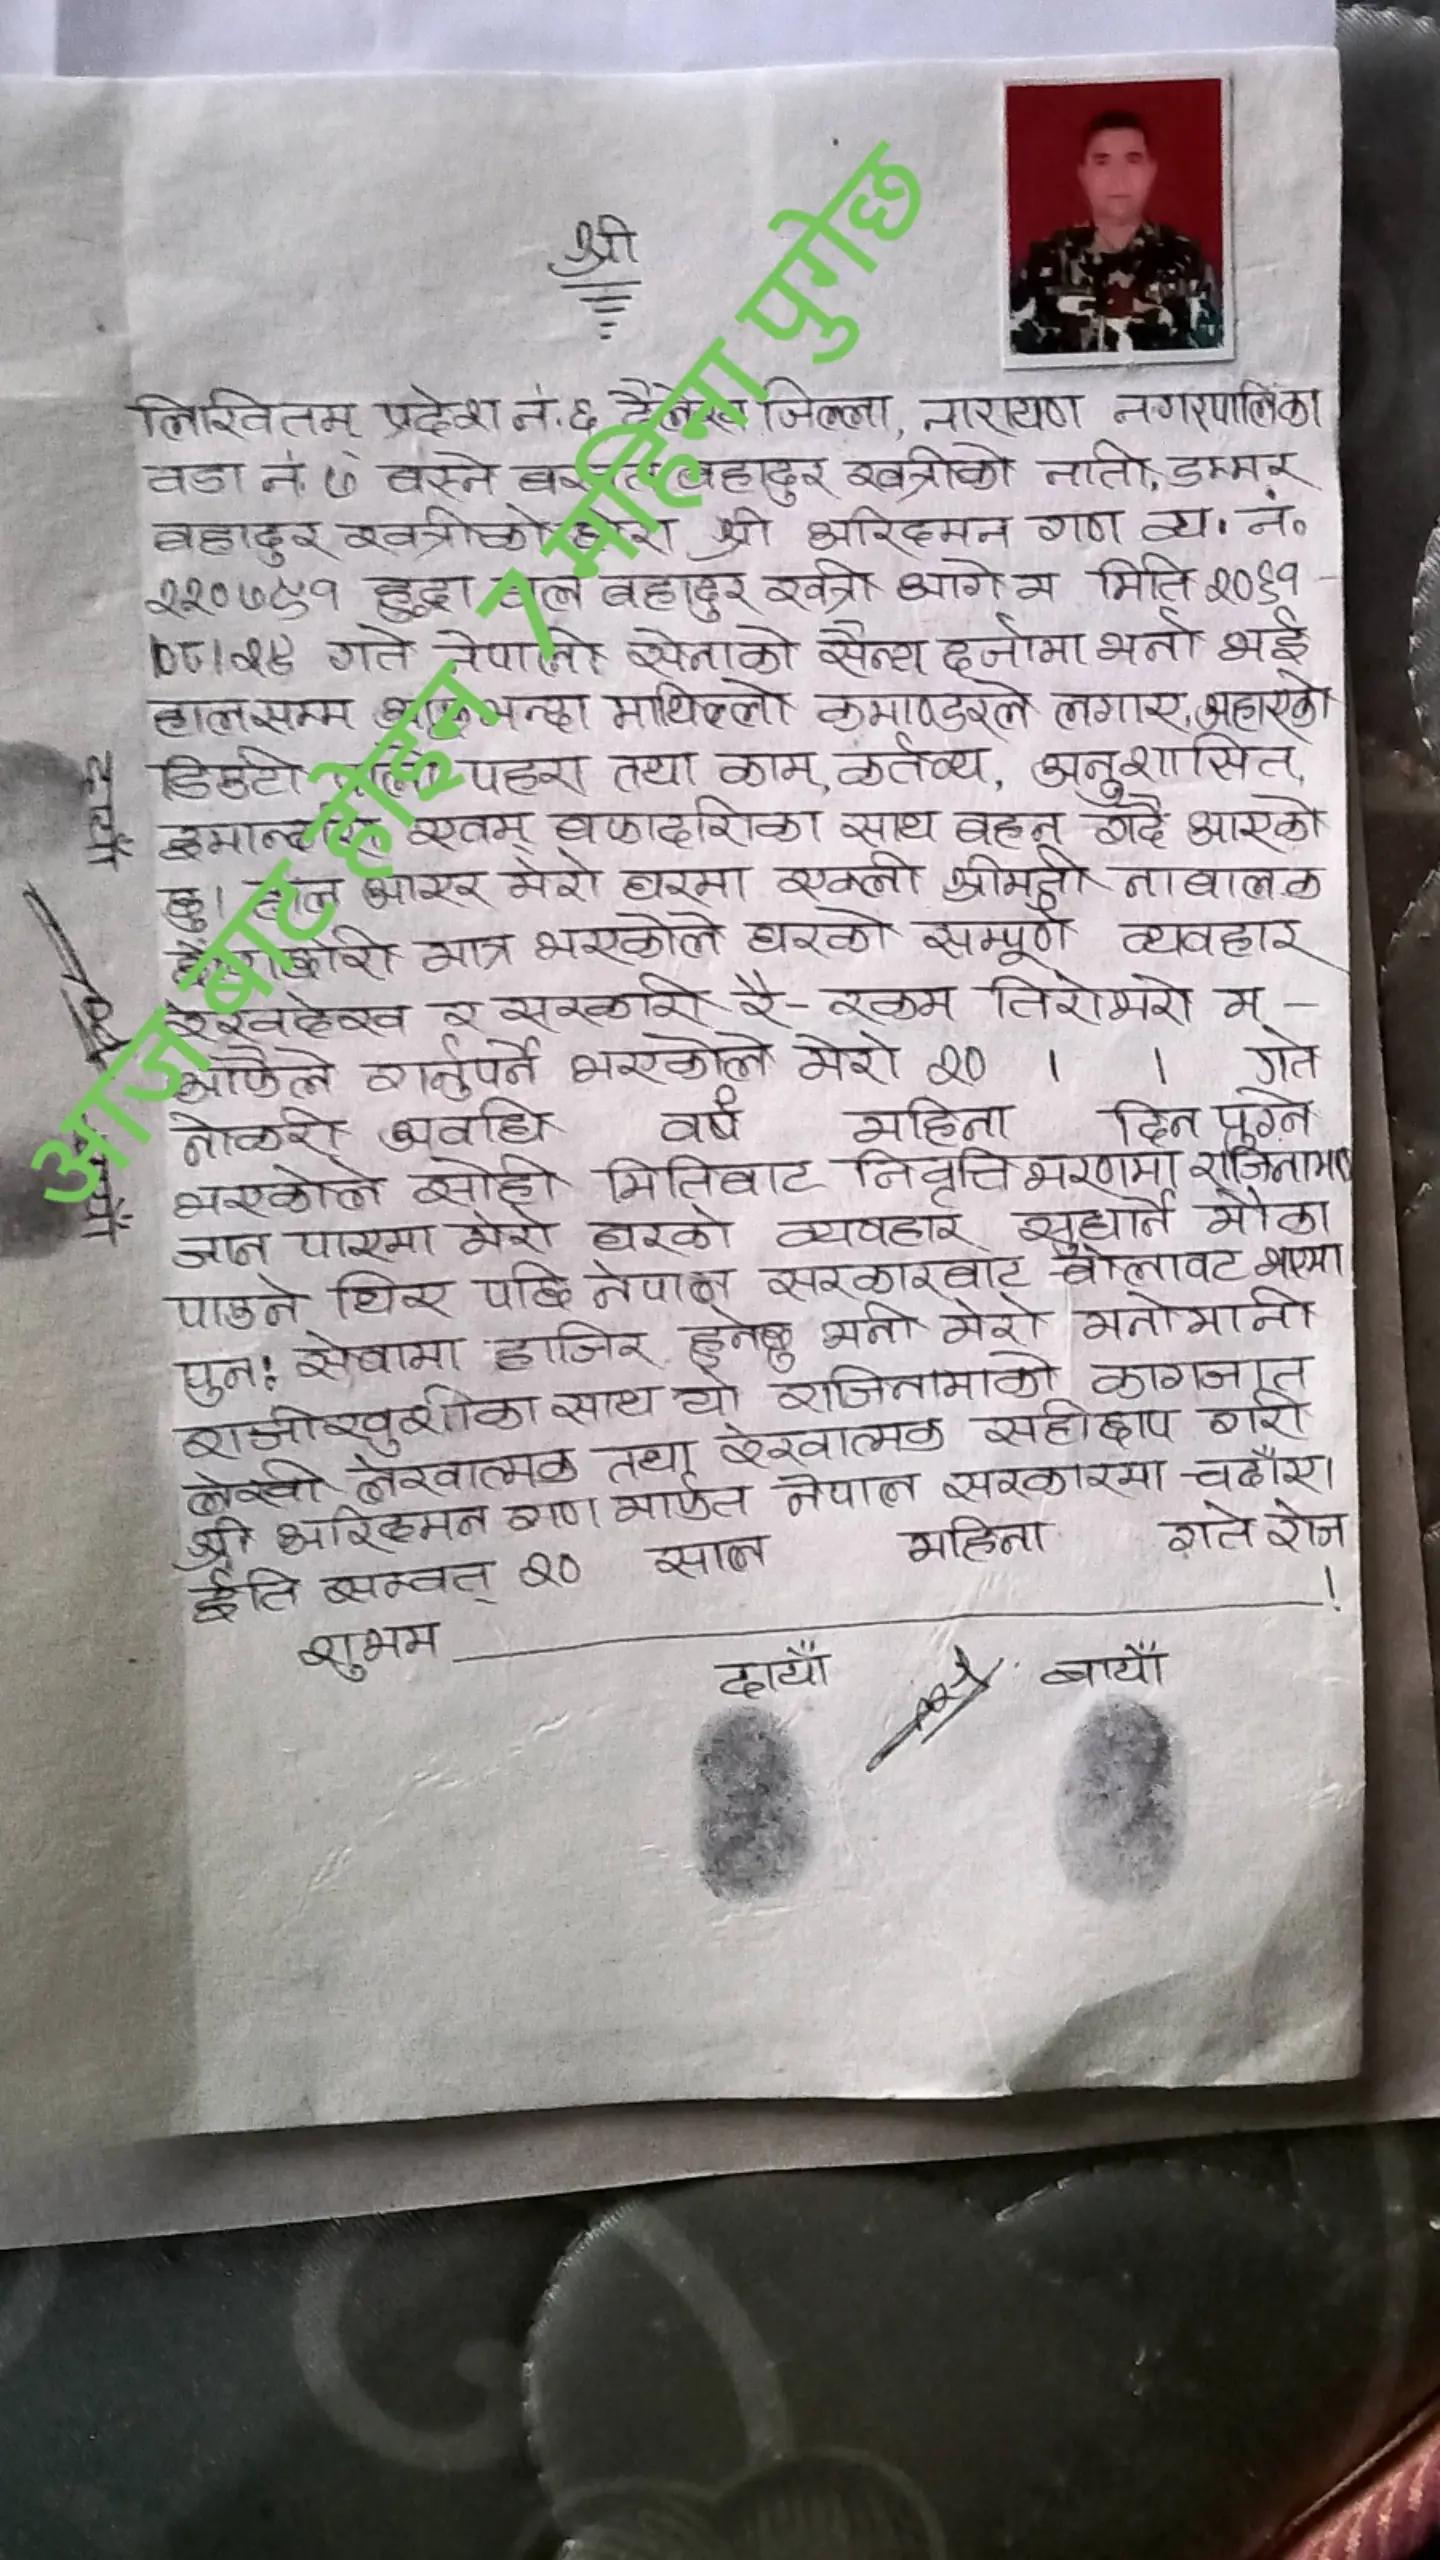 श्री
लिखितम् प्रदेश नं.६ दैलेख जिल्ला, नारायण नगरपालिका
वडा नं. ७ बस्ने बहादुर खत्रीको नाती, डम्मर
बहादुर खत्रीको छोरा श्री अरिदमन गण व्य. नं.
२२०७५१ हुद्दा बल बहादुर खत्री आगे म मिति २०६१
।०८।२५ गते नेपाली सेनाको सैन्य दर्जामा भर्ना भई
हालसम्म आफुभन्दा माथिल्लो कमाण्डरले लगाए, अह्राएको
डिउटी पहरा तथा काम, कर्तव्य, अनुशासित,
इमान्दार एवम् बफादारिका साथ बहन गर्दै आएको
छु। हाल आएर मेरो घरमा एक्ली श्रीमती नाबालक
छोराछोरी मात्र भएकोले घरको सम्पूर्ण व्यवहार
रेखदेख र सरकारी रै-रकम तिरोभरो म -
आफैले गर्नुपर्ने भएकोले मेरो २० । । गते
नोकरी अवधि वर्ष महिना दिन पुग्ने
भएकोले सोही मितिबाट निवृत्तिभरणमा राजिनामा
जान पाएमा मेरो घरको व्यवहार सुधार्ने मौका
पाउने थिए पछि नेपाल सरकारबाट बोलावट भएमा
पुन: सेवामा हाजिर हुनेछु भनी मेरो मनोमानी
राजीखुशीका साथ यो राजिनामाको कागजात
लेखी लेखात्मक तथा रेखात्मक सहीछाप गरी
श्री अरिदमन गण मार्फत नेपाल सरकारमा चढाँए।
ईति सम्वत् २० साल महिना गते रोज
शुभम ।
दायाँ बायाँ
आज बाट होइन 7 महिना पुगेछ